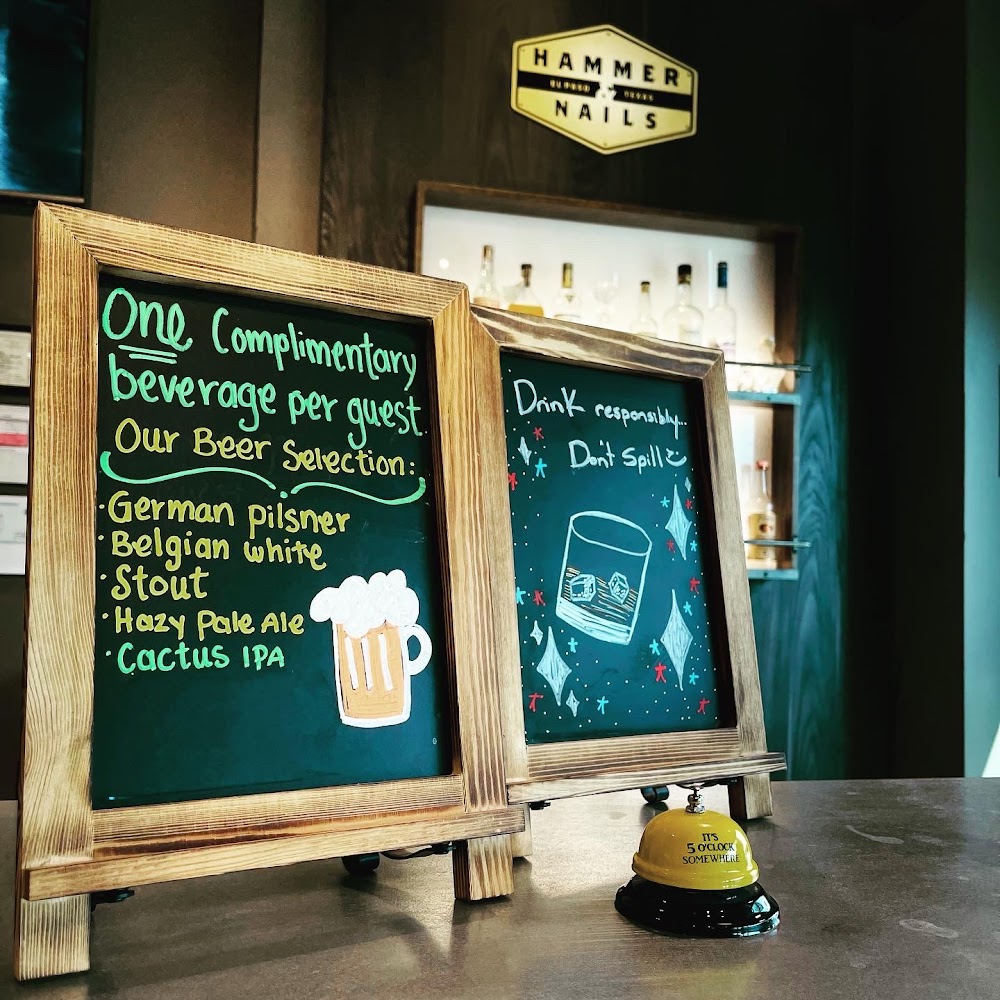 HAMMER
EL PASO & TEXAS
NAILS
One Complimentary
beverage per guest.
Our Beer Selection:
·German pilsner
·Belgian white
·Stout
·Hazy Pale Ale
·Cactus IPA
Drink responsibly...
Don't Spill
IT'S
5 O'CLOCK
SOMEWHERE